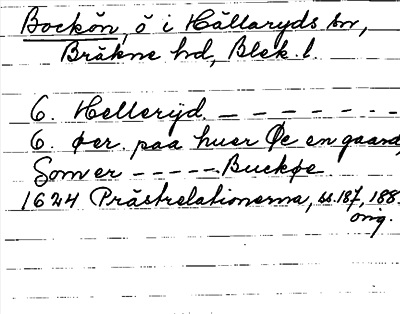 Bockön, ö i Hällaryds sn,
Bräkne hd, Blek. l.
6. Hellerijd. — — — — — — —
6. Øer. paa huer Øe en gaard,
Som er — — — — — Buckøe
1624 Prästrelationerna, ss. 187, 188.
orig.